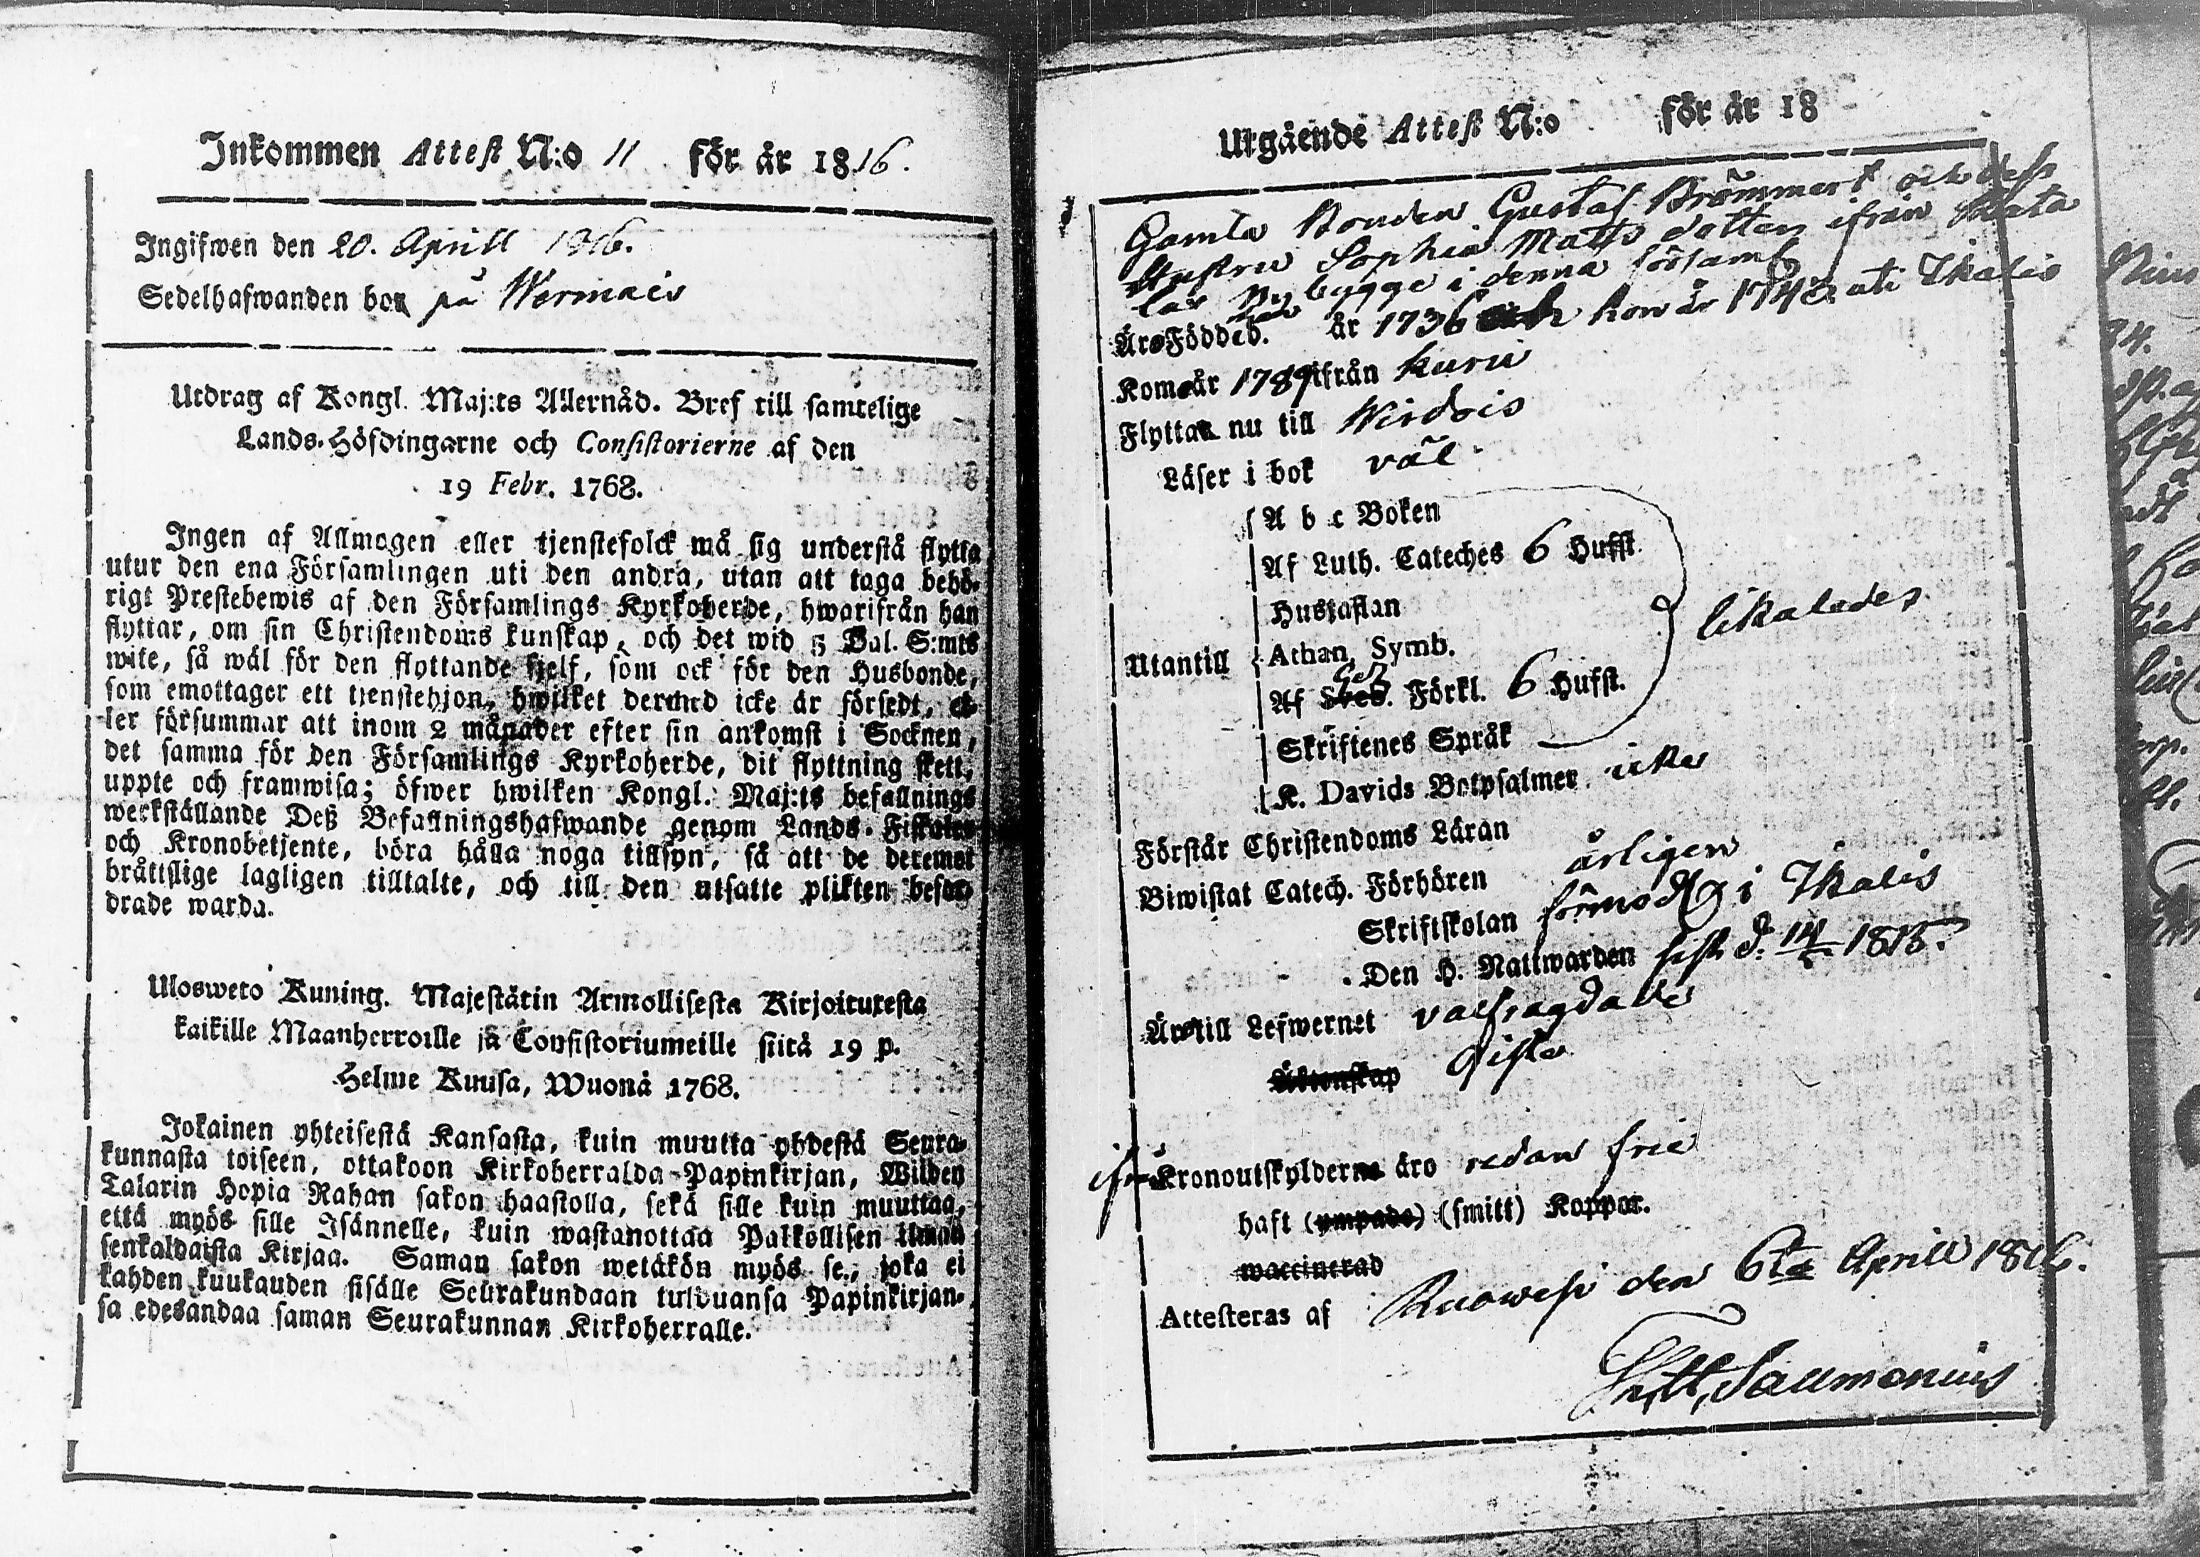 Inkommen Attest N:o 11 för år 1816.
Ingifwen den 20. Aprill 1816.
Sedelhafwanden bor på Wermais
Utdrag af Kongl. Maj:ts Allernåd. Bref till samtelige
Lands-Höfdingarne och Consistorierne af den
19 Febr. 1768.
Ingen af Allmogen eller tjenstefolck må sig understå flytta
utur den ena Församlingen uti den andra, utan att taga behö-
rigt Prestebewis af den Församlings Kyrkoherde, hwarifrån han
flyttar, om sin Christendoms kunskap, och det wid 5 Dal. S:mts
wite, så wäl för den flyttande sjelf, som ock för den Husbonde,
som emottager ett tjenstehjon, hwilket dermed icke är försedt, el-
ler försummar att inom 2 månader efter sin ankomst i Socknen,
det samma för den Församlings Kyrkoherde, dit flyttning skett,
uppte och framwisa; öfwer hwilken Kongl. Maj:ts befallnings
werkställande Deß Befallningshafwande genom Lands-Fiskaler
och Kronobetjente, böra hålla noga tillsyn, så att de deremot
bråttslige lagligen tilltalte, och till den utsatte plikten befor-
drade warda.
Ulosweto Kuning. Majestätin Armollisesta Kirjoituxesta
kaikille Maanherroille ja Consistoriumeille siitä 19 p.
Helme Kuusa, Wuonä 1768.
Jokainen yhteisestä Kansasta, kuin muutta yhdestä Seura-
kunnasta toiseen, ottakoon Kirkoherralda Papinkirjan, Wiiden
Talarin Hopia Rahan sakon haastolla, sekä sille kuin muuttaa,
että myös sille Isännelle, kuin wastanottaa Palkollisen ilman
senkaldaista Kirjaa. Saman sakon wetäkön myös se, joka ei
kahden kuukauden sisälle Seurakundaan tulduansa Papinkirjan-
sa edesandaa saman Seurakunnan Kirkoherralle.
Utgående Attest N:o för år 18
Gamla Bonden Gustaf Brommert och dess
Hustru Sophia Matts dotter ifrån
Nybygge i denna församl.
Äro Födde d. år 1736 och hon år 174 uti Ikalis
Komne år 1789 ifrån Kuru
Flyttar nu till Wirdois
Läser i bok väl
A b c Boken
Af Luth. Cateches 6 Hufst.
Hustaflan
Utantill
Athan. Symb.
Af Sveb. Förkl. 6 Hufst.
Skriftenes Språk
likaledes
K. Davids Botpsalmer icke
Förstår Christendoms Läran
Biwistat Catech. Förhören årligen
Skriftskolan förmodl. i Ikalis
Den H. Nattwarden sist d. 1815.
Äro till Lefwernet välfragdade
Äktenskap Gifte
ifrån Kronoutskylderna äro redan frie
haft (ympade) (smitt) Koppor.
waccinerad
Attesteras af Ruowesi den 6te Aprill 1816.
Sallmenius